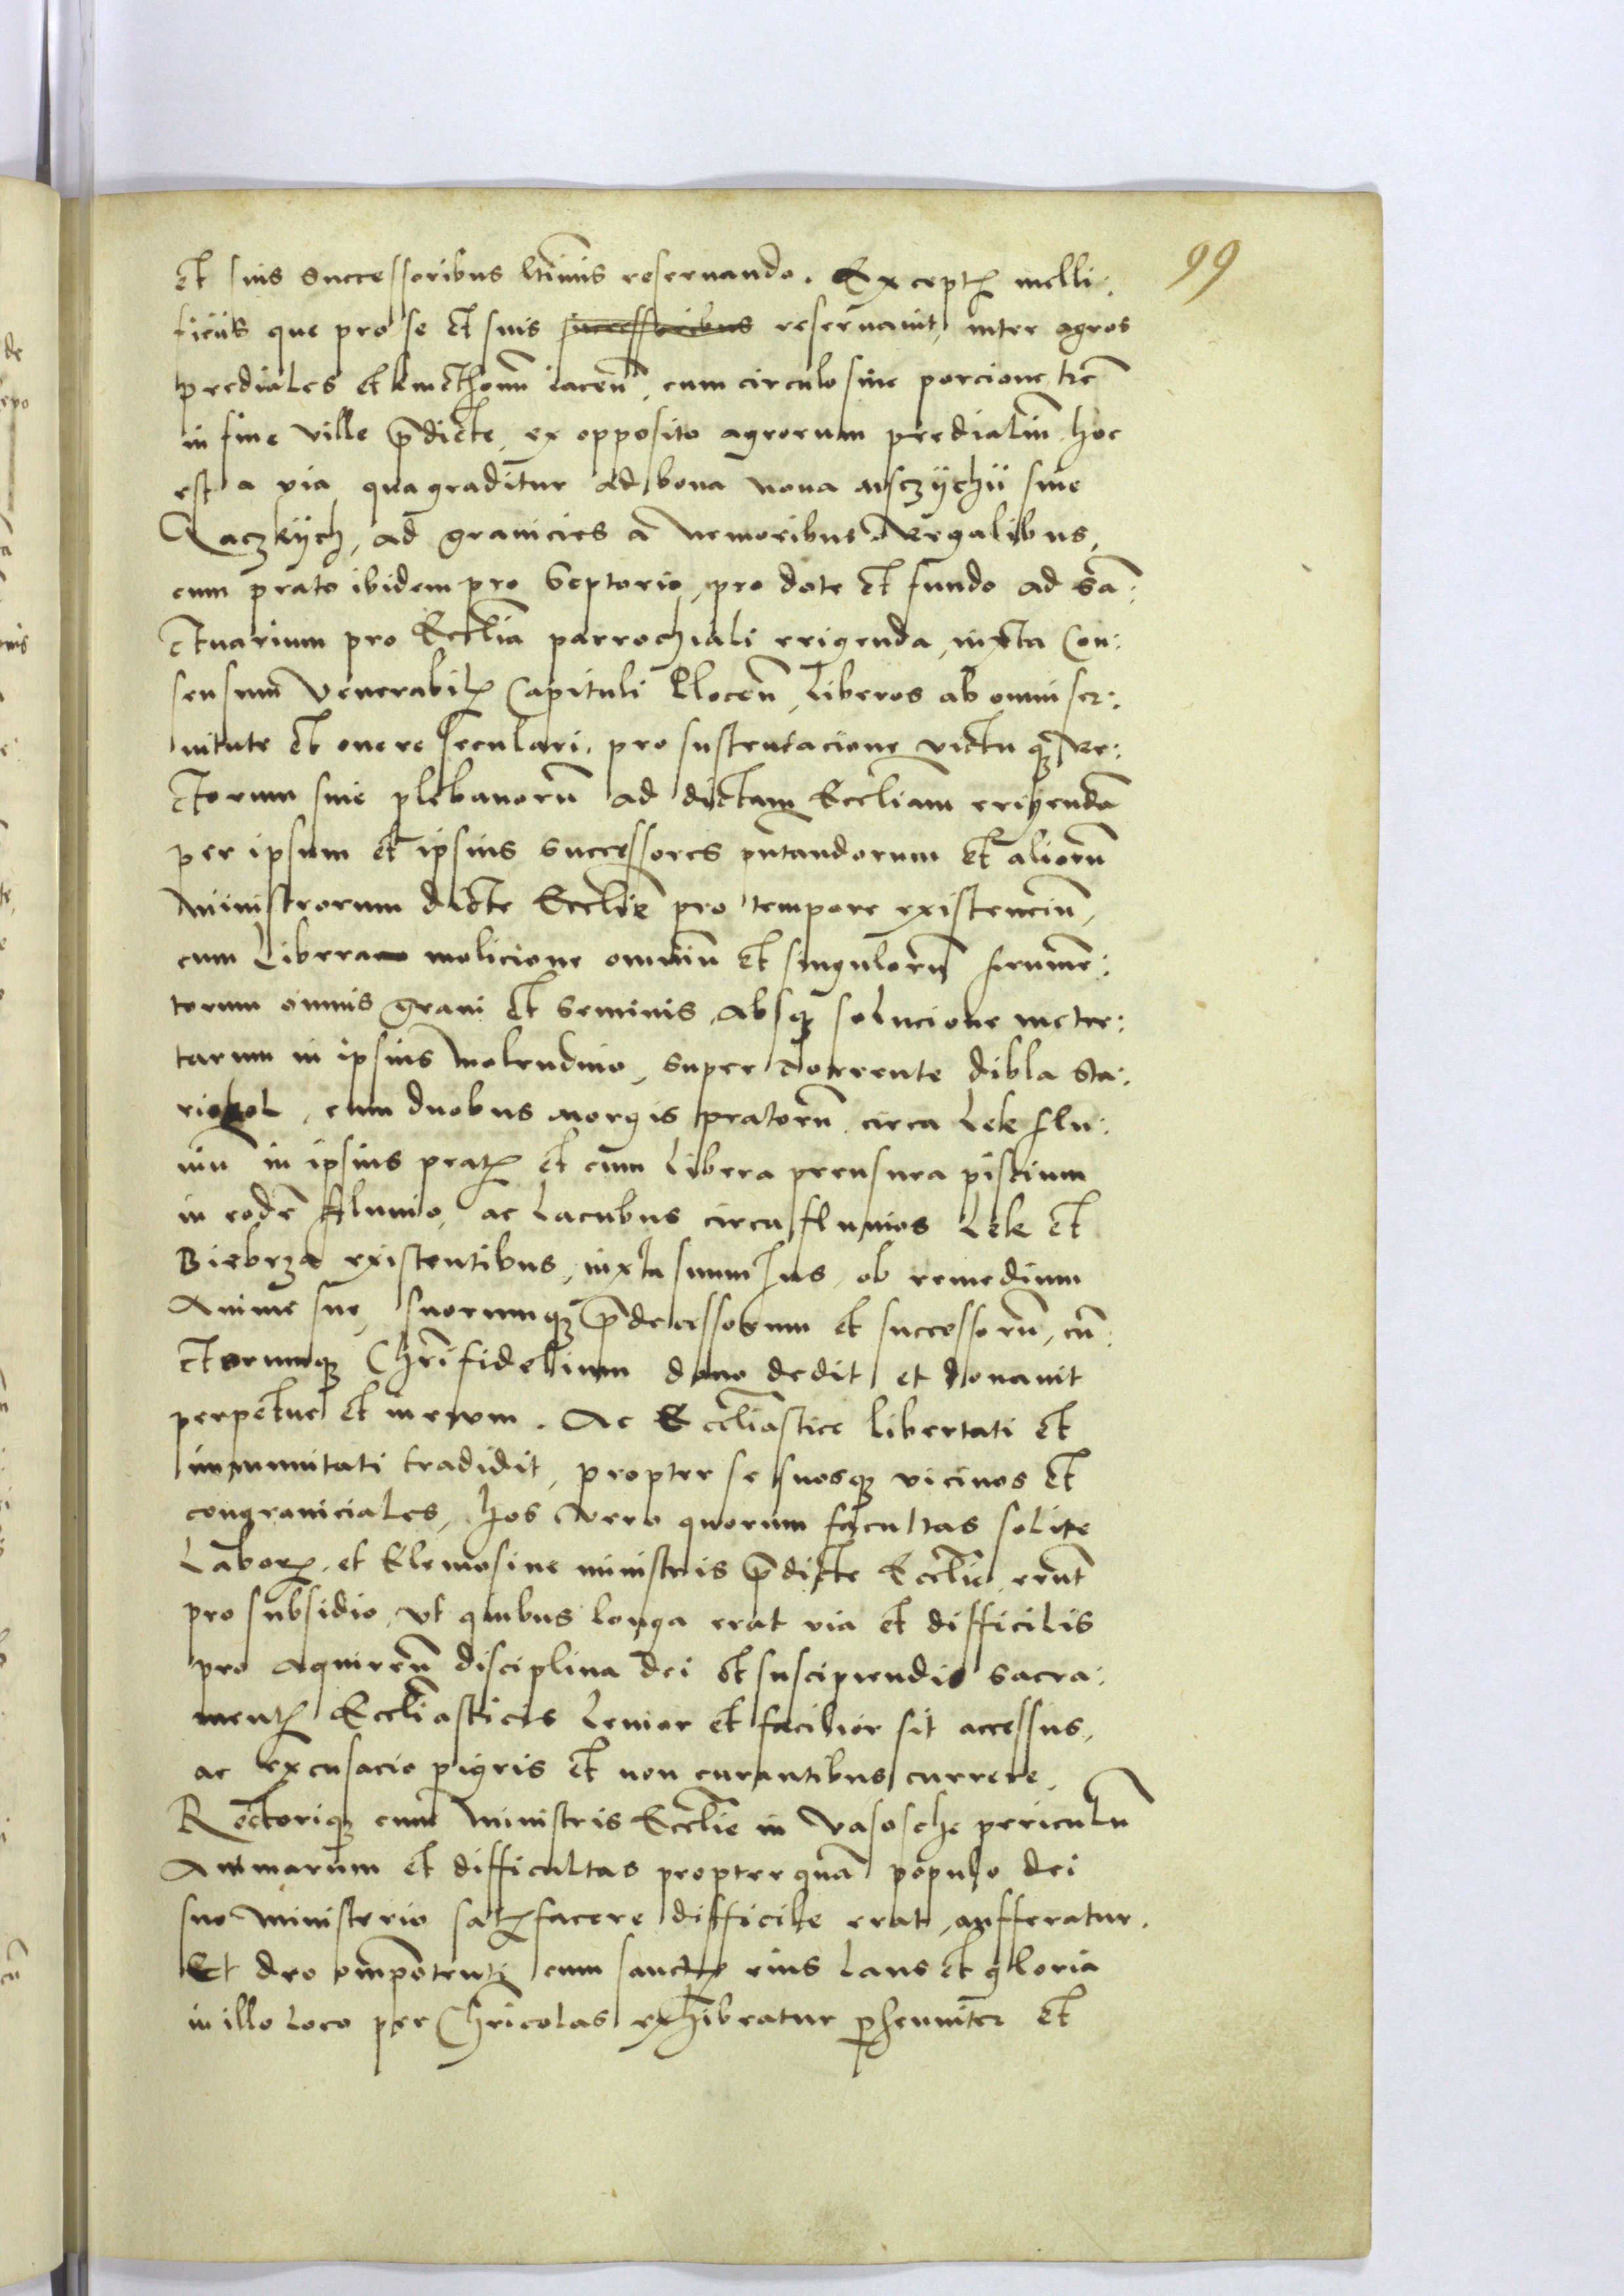 99
et suis successoribus ltimis reseruando. Exceptis melli:
ficiis que pro se et suis successoribus reseruauit, inter agros
prediales et kmethonũ iaceñ, cum circulo siue porcione tre
in fine ville p̃dicte, ex opposito agrorum predialiũ hoc
est a via qua graditur ad bona noua
Raczkych, ad granicies a nemoribus Regalibus,
cum prato ibidem pro septorio, pro dote et fundo ad sã:
ctuarium pro Ecclia parrochiali erigenda, iuxta Con:
sensum Venerabilis Capituli Plocen̄, liberos ab omni ser:
uitute et onere seculari, pro sustentacione victuq̃ Re:
ctorum siue plebanorũ ad dictam Eccliam erigendã
per ipsum et ipsius successores pñtandorum et aliorũ
ministrorum dicte Ecclie pro tempore existenciũ,
cum libera molicione omniũ et singulorũ frumẽ:
torum omnis grani et seminis, absq̃ solucione metre:
tarum in ipsius molendino, super torrente dibla Sta:
riokol, cum duobus morgis pratorũ circa Lek flu:
uiũ in ipsius pratis et cum libera prensura piscium
in eodẽ fluuio, ac lacubus circa fluuios Lek et
Biebrza existentibus, iuxta suum Jus, ob remedium
Anime sue, suorumq̃ p̃decessorum et successorũ, cũ:
ctorumq̃ Chrifidelium dono dedit et donauit
perpetue et in ewm. Ac Eccliastice libertati et
immunitati tradidit, propter se suosq̃ vicinos et
congraniciales, hos vero quorum facultas solite
Laboris et Elemosine ministris p̃dicte Ecclie erũt
pro subsidio, vt quibus longa erat via et difficilis
pro aquireñ disciplina dei et suscipiendis sacra:
mentis Eccliasticis leuior et facilior sit accessus,
ac excusacio pigris et non curantibus currere.
Rectoriq̃ cum ministris Ecclie in Vasosche periculũ
Animarum et difficultas propter quã populo dei
suo ministerio satisfacere difficile erat, aufferatur.
Et deo omp̃otenti cum sanctis eius laus et gloria
in illo loco per Chricolas exhibeatur perhenniter et